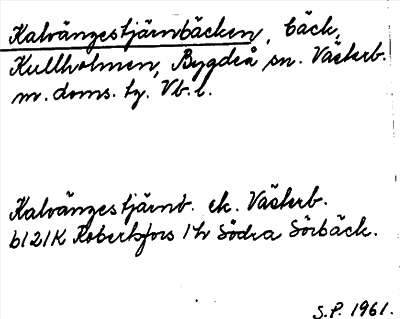 Kalvängestjärnbäcken, bäck,
Kullholmen, Bygdeå sn. Västerb.
m. doms. tg. Vb. l.
Kalvängestjärnb. ek. Västerb.
b121K Robertsfors 1h Södra Sörbäck.
S.P. 1961.